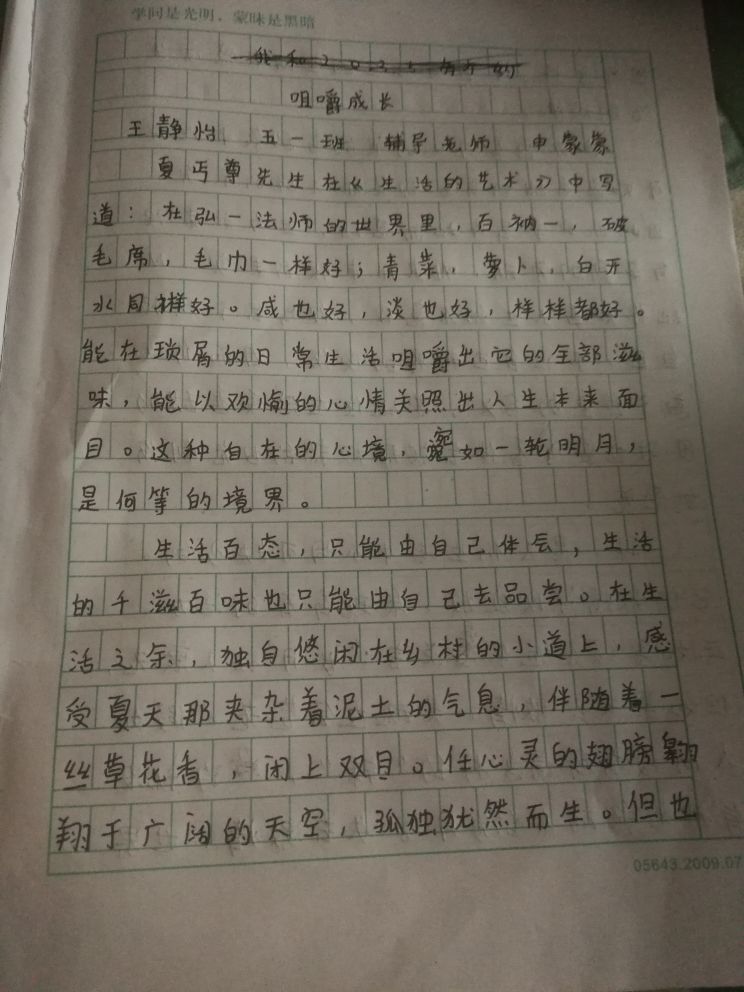 学问是光明，蒙昧是黑暗
我和2035有个约
咀嚼成长
王静怡 五一班 辅导老师 申家家
夏丏尊先生在《生活的艺术》中写
道：在弘一法师的世界里，百衲一，破
毛席，毛巾一样好；青菜，萝卜，白开
水同样好。咸也好，淡也好，样样都好。
能在琐屑的日常生活咀嚼出它的全部滋
味，能以欢愉的心情关照出人生本来面
目。这种自在的心境，宛如一轮明月，
是何等的境界。
生活百态，只能由自己体会，生活
的千滋百味也只能由自己去品尝。在生
活之余，独自悠闲在乡村的小道上，感
受夏天那夹杂着泥土的气息，伴随着一
丝草花香，闭上双目。任心灵的翅膀翱
翔于广阔的天空，孤独犹然而生。但也
05643.2009.07